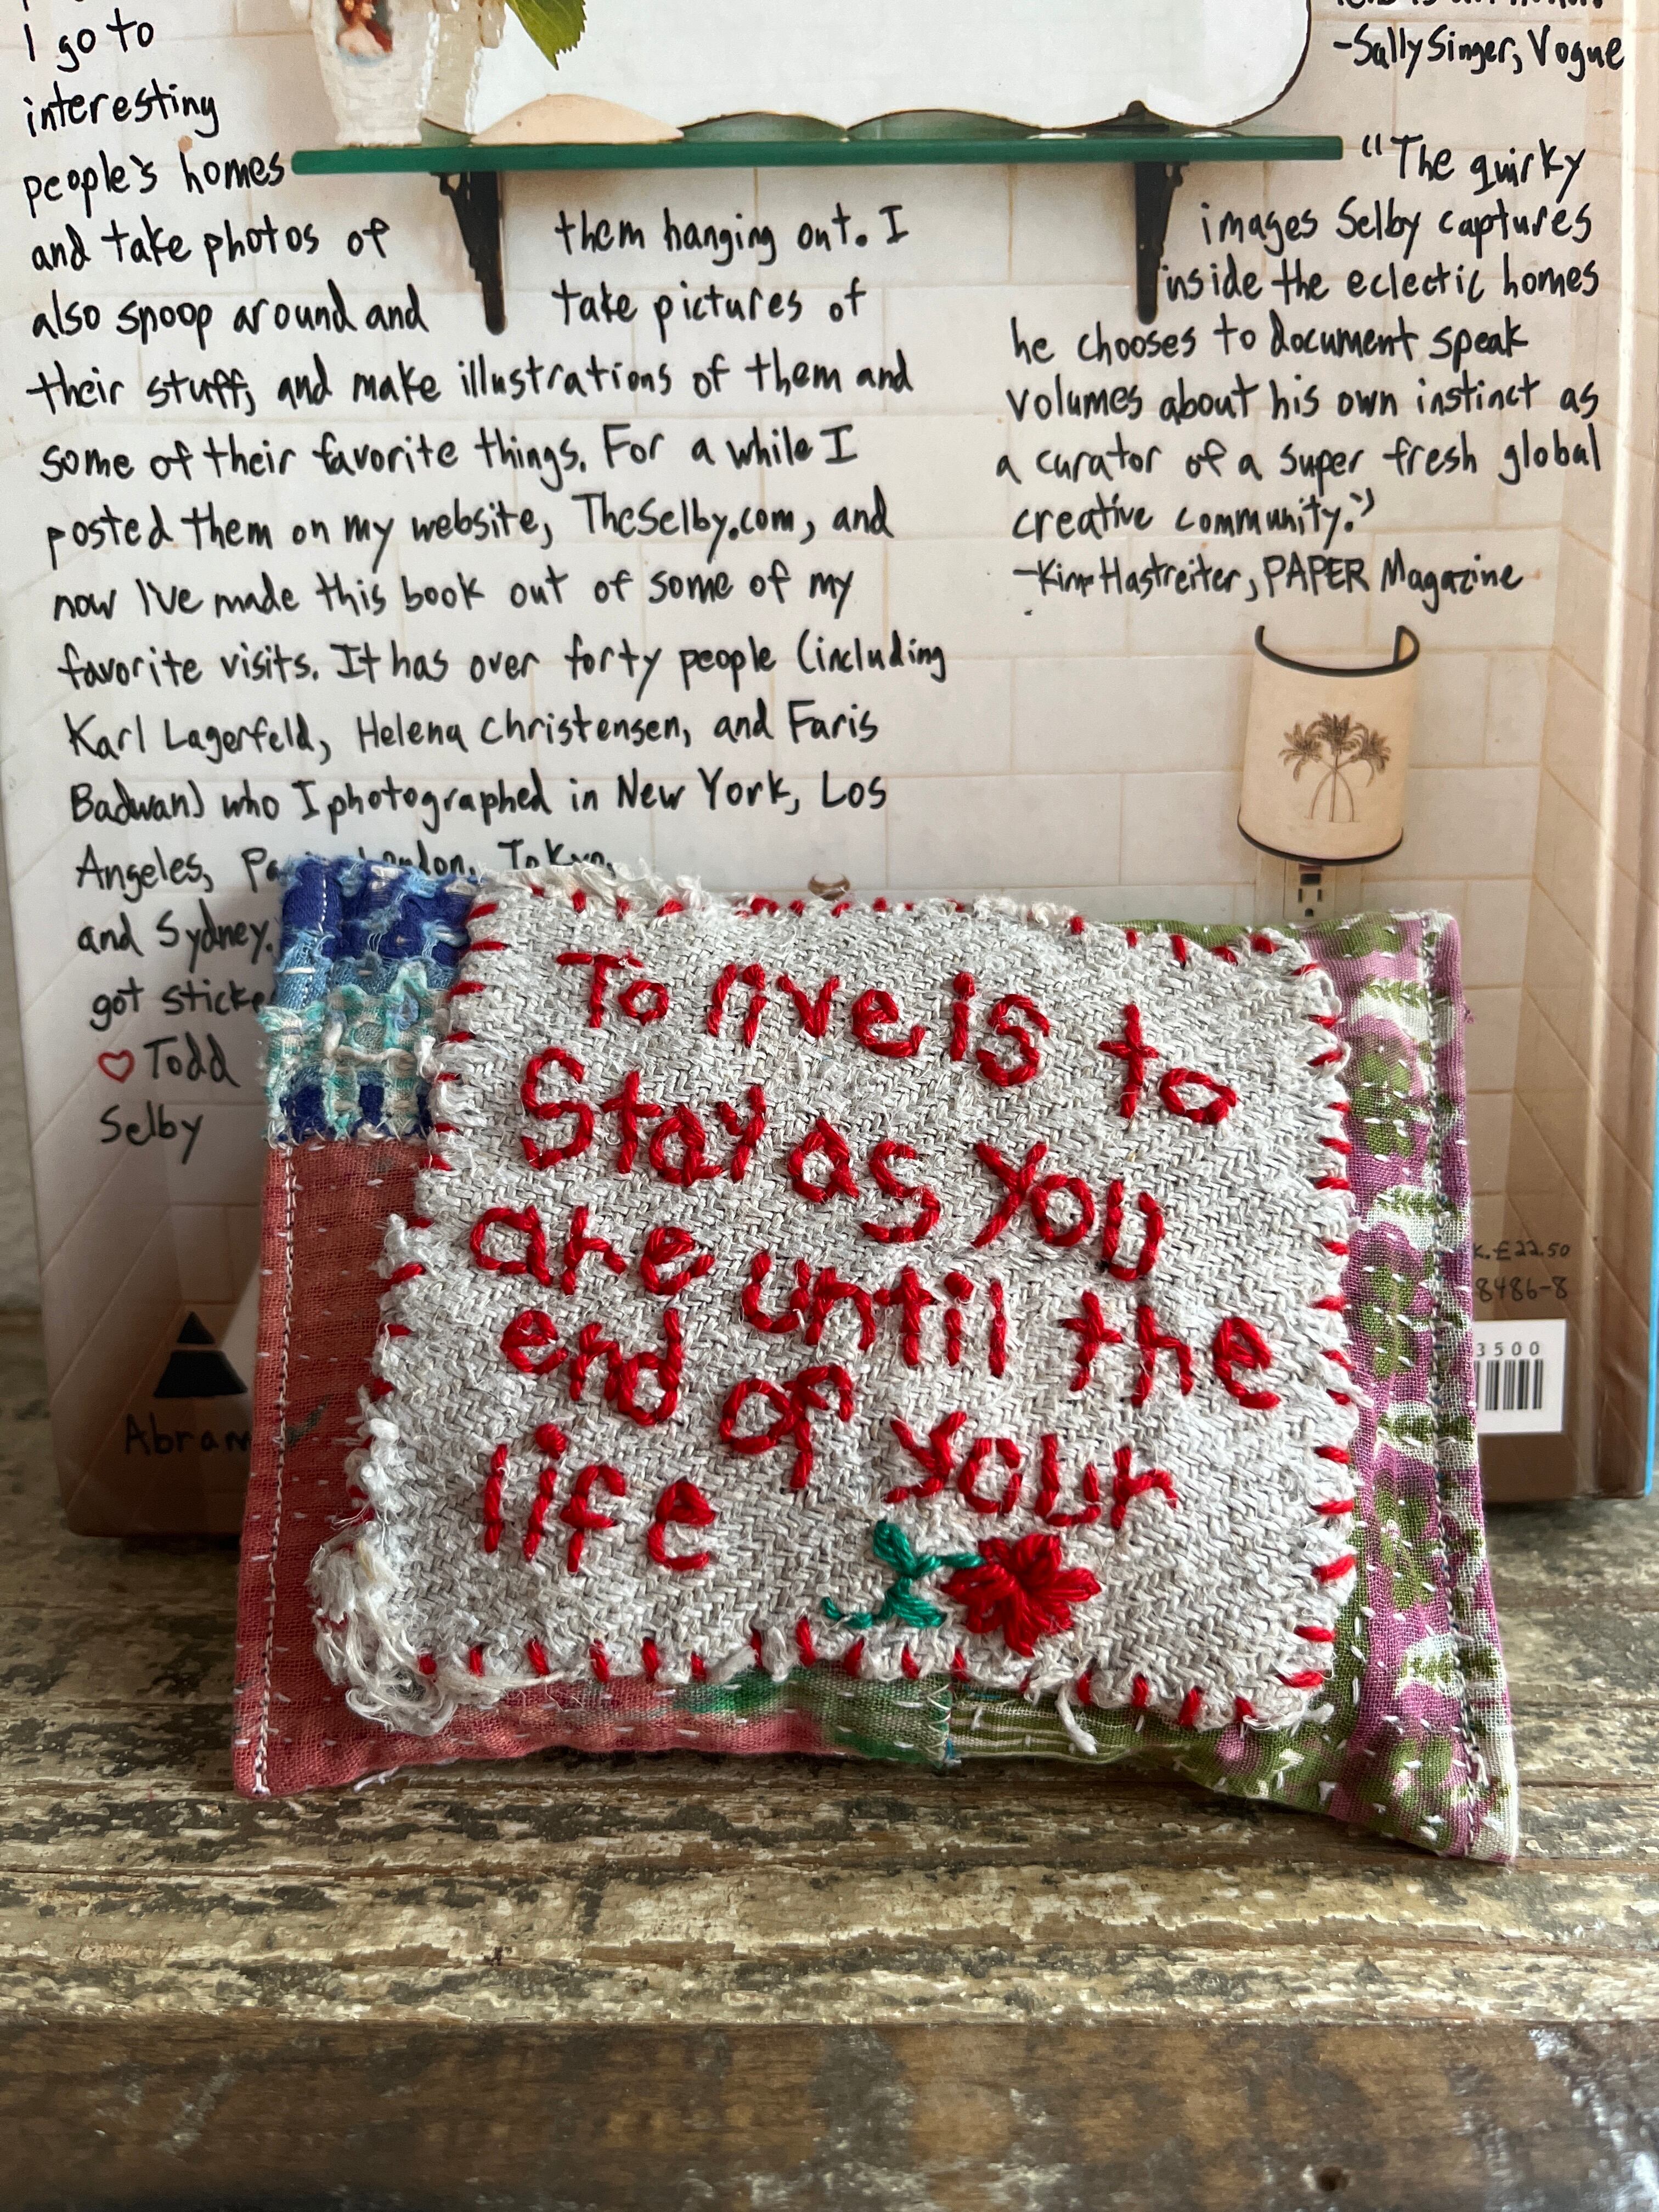 I go to
interesting
people's homes
and take photos of
them hanging out. I
also snoop around and
take pictures of
their stuff, and make illustrations of them and
some of their favorite things. For a while I
posted them on my website, TheSelby.com, and
now I've made this book out of some of my
favorite visits. It has over forty people (including
Karl Lagerfeld, Helena Christensen, and Faris
Badwan) who I photographed in New York, Los
Angeles, London, Tokyo,
and Sydney.
got
♡ Todd
Selby
-Sally Singer, Vogue
"The quirky
images Selby captures
inside the eclectic homes
he chooses to document speak
volumes about his own instinct as
a curator of a super fresh global
creative community."
-Kim Hastreiter, PAPER Magazine
£22.50
8486-8
3500
Abram
To live is to
Stay as you
are until the
end of your
life